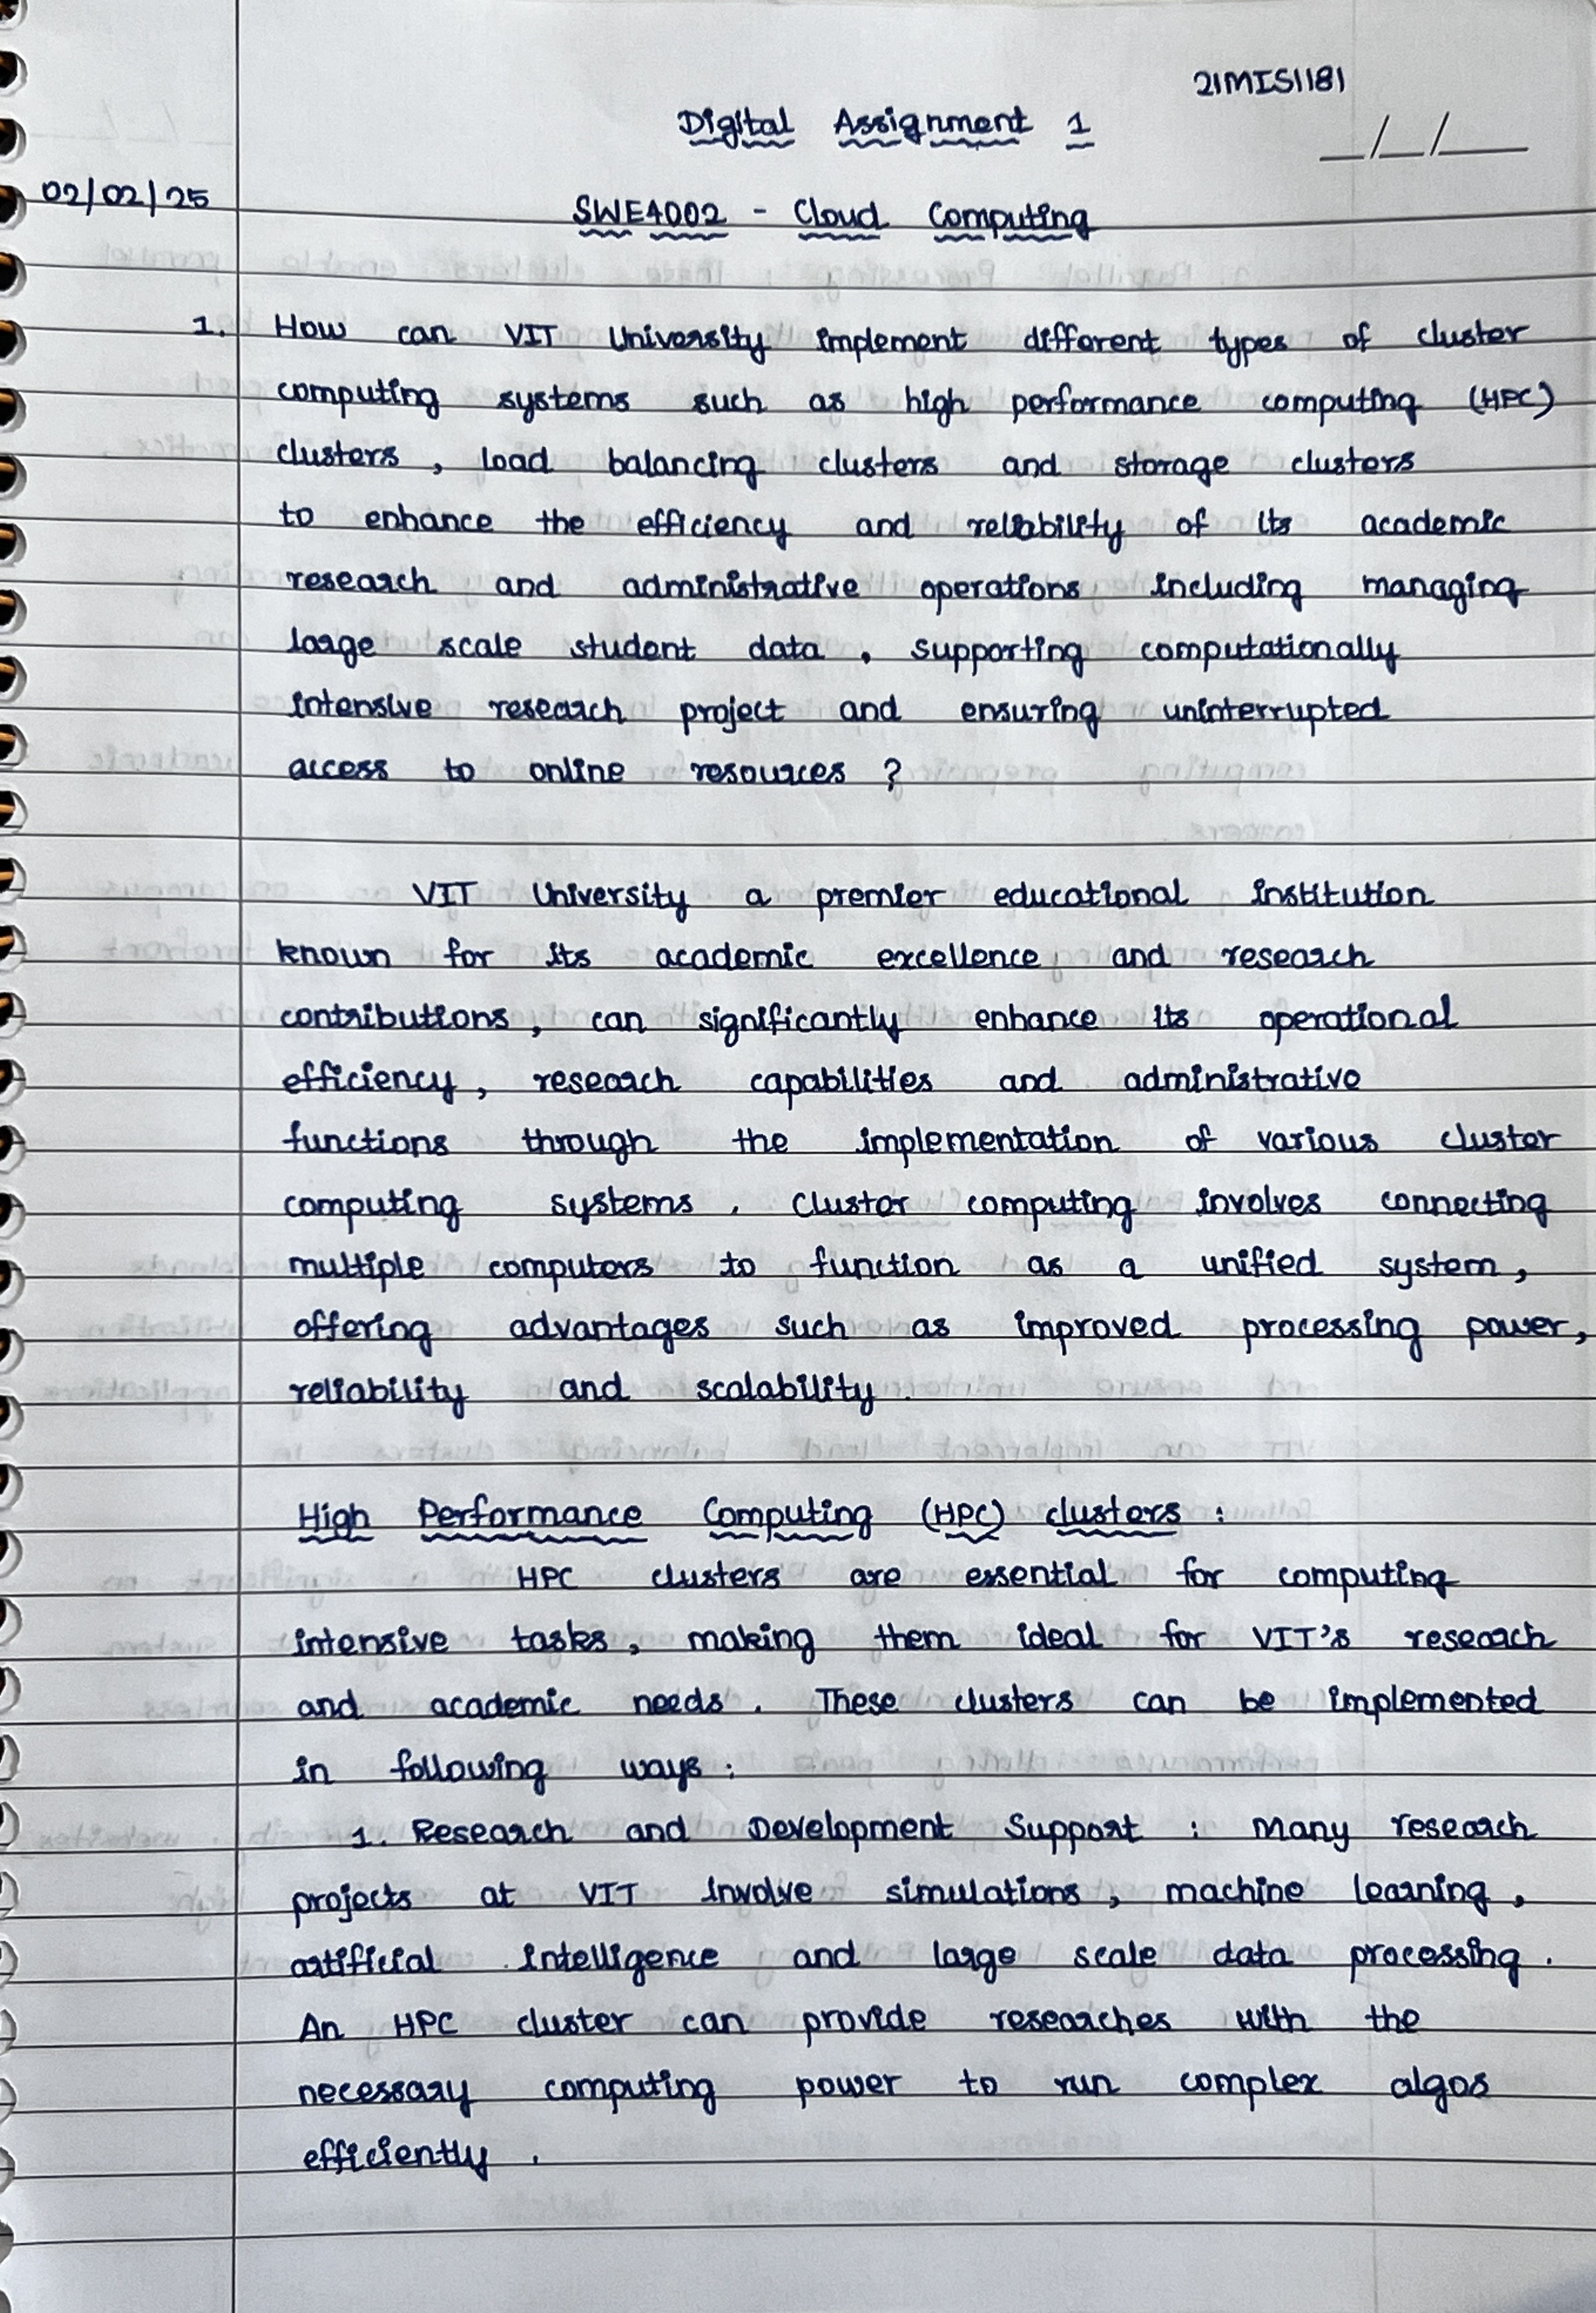 21MIS1181
Digital Assignment 1
__/__/____
02/02/25
SWE4002 - Cloud Computing
1. How can VIT University implement different types of cluster
computing systems such as high performance computing (HPC)
clusters, load balancing clusters and storage clusters
to enhance the efficiency and reliability of its academic
research and administrative operations including managing
large scale student data, supporting computationally
intensive research project and ensuring uninterrupted
access to online resources ?
VIT University a premier educational institution
known for its academic excellence and research
contributions, can significantly enhance its operational
efficiency, research capabilities and administrative
functions through the implementation of various cluster
computing systems. Cluster computing involves connecting
multiple computers to function as a unified system,
offering advantages such as improved processing power,
reliability and scalability.
High Performance Computing (HPC) clusters :
HPC clusters are essential for computing
intensive tasks, making them ideal for VIT's research
and academic needs. These clusters can be implemented
in following ways :
1. Research and Development Support : Many research
projects at VIT involve simulations, machine learning,
artificial intelligence and large scale data processing.
An HPC cluster can provide researches with the
necessary computing power to run complex algos
efficiently.